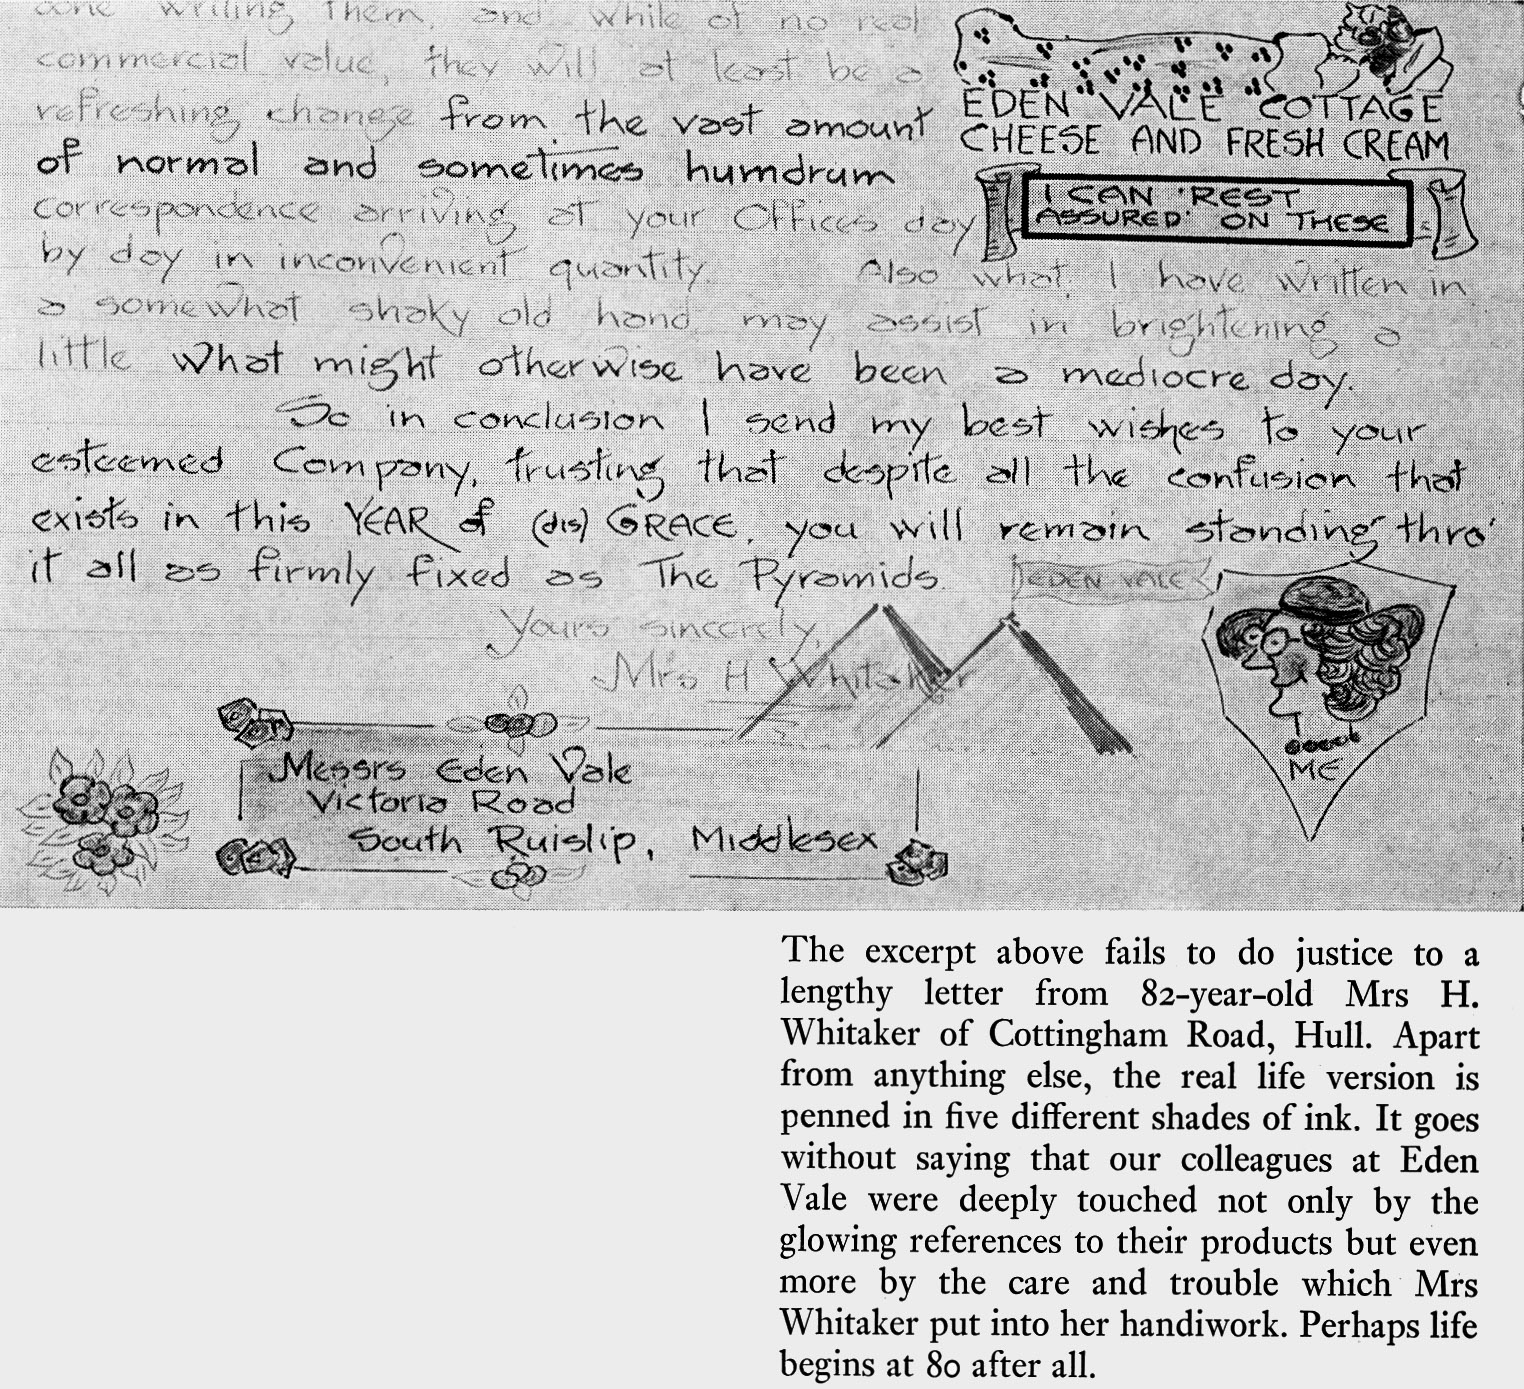 done writing them, and while of no real
commercial value, they will at least be a
refreshing change from the vast amount
of normal and sometimes humdrum
correspondence arriving at your Offices day
by day in inconvenient quantity. Also what I have written in
a somewhat shaky old hand may assist in brightening a
little what might otherwise have been a mediocre day.
So in conclusion I send my best wishes to your
esteemed Company, trusting that despite all the confusion that
exists in this YEAR of (dis) GRACE, you will remain standing thro'
it all as firmly fixed as The Pyramids.
Yours sincerely,
Mrs H Whitaker
EDEN VALE COTTAGE
CHEESE AND FRESH CREAM
I CAN 'REST
ASSURED' ON THESE
EDEN VALE
ME
Messrs Eden Vale
Victoria Road
South Ruislip, Middlesex
The excerpt above fails to do justice to a
lengthy letter from 82-year-old Mrs H.
Whitaker of Cottingham Road, Hull. Apart
from anything else, the real life version is
penned in five different shades of ink. It goes
without saying that our colleagues at Eden
Vale were deeply touched not only by the
glowing references to their products but even
more by the care and trouble which Mrs
Whitaker put into her handiwork. Perhaps life
begins at 80 after all.